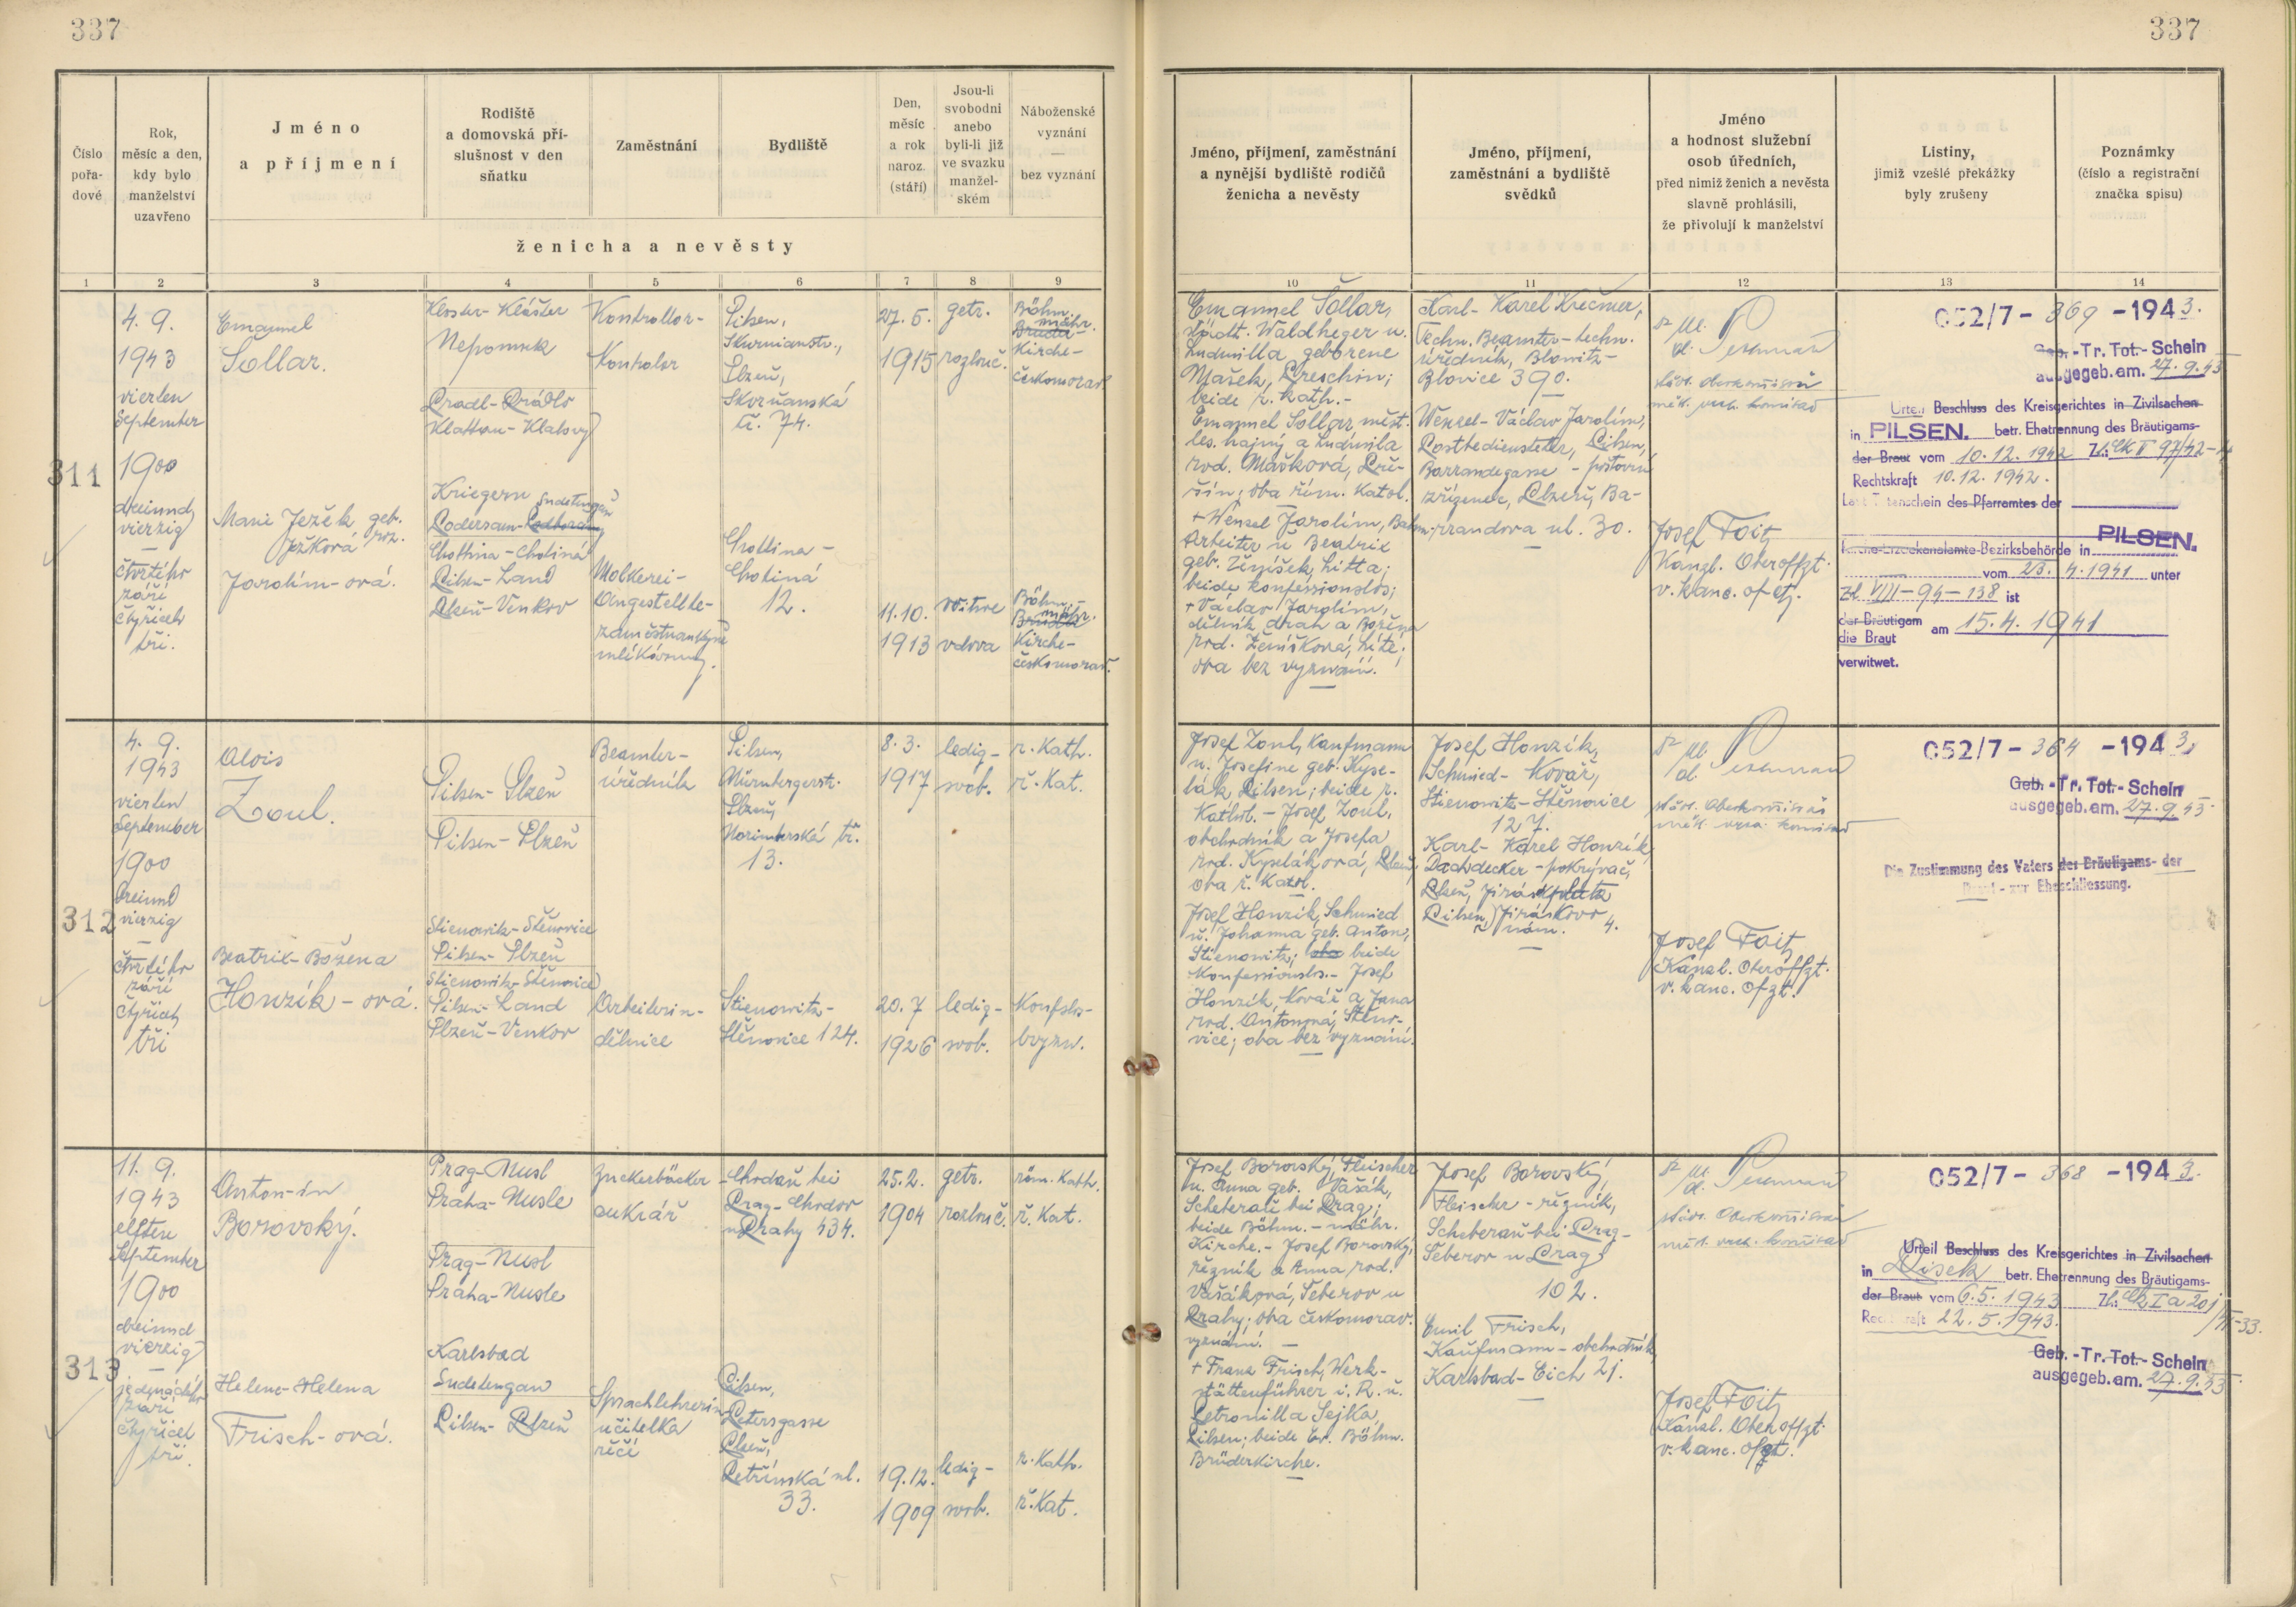 337
337
Číslo pořa-dové
Rok, měsíc a den, kdy bylo manželství uzavřeno
Jméno a příjmení
Rodiště a domovská pří-slušnost v den sňatku
Zaměstnání
Bydliště
Den, měsíc a rok naroz. (stáří)
Jsou-li svobodni anebo byli-li již ve svazku manžel-ském
Náboženské vyznání — bez vyznání
ženicha a nevěsty
Jméno, příjmení, zaměstnání a nynější bydliště rodičů ženicha a nevěsty
Jméno, příjmení, zaměstnání a bydliště svědků
Jméno a hodnost služební osob úředních, před nimiž ženich a nevěsta slavně prohlásili, že přivolují k manželství
Listiny, jimiž vzešlé překážky byly zrušeny
Poznámky (číslo a registrační značka spisu)
1 2 3 4 5 6 7 8 9 10 11 12 13 14
311
4. 9.
1943
vierten
September
1900
dreiund
vierzig
—
čtvrtého
září
čtyřicet
tři.
Emanuel
Šollar.
Marie Ježek geb.
Ježková roz.
Jarolím-ová.
Kloster-Klášter
Nepomuk
Pradl-Prádlo
Klattau-Klatovy
Kriegern Sudetengau
Podersam-Podbořany
Chottina-Chotiná
Pilsen-Land
Plzeň-Venkov
Kontrollor-
Kontrolor
Molkerei-
Angestellte-
zaměstnankyně
mlékárny.
Pilsen,
Skurnianstr.,
Plzeň,
Skvrňanská
tř. 74.
Chottina-
Chotiná
12.
27. 5.
1915
11.10.
1913
getr.
rozluč.
Witwe
vdova
Böhm.
mähr.
Brüder-
Kirche-
českomorav.
Böhm.-
mähr.
Brüder
Kirche-
českomorav.
Emanuel Šollar,
städt. Waldheger u.
Ludmilla geborene
Mašek, Preschin;
beide r. kath.-
Emanuel Šollar, měst.
les. hajný a Ludmila
rod. Mašková, Pře-
šín; oba řím. katol.
+ Wenzel Jarolím, Bahn-
Arbeiter u Beatrix
geb. Ženíšek, Litta;
beide konfessionslos;
+ Václav Jarolím,
dělník drah a Božena
rod. Ženíšková, Lité;
oba bez vyznání.
Karl-Karel Krečmer,
Techn. Beamter-techn.
úředník, Blowitz-
Blovice 390.
Wenzel-Václav Jarolím,
Postbediensteter, Pilsen,
Barrandegasse - poštovní
zřízenec, Plzeň, Ba-
rrandova ul. 30.
Josef Foit,
Kanzl. Oberoffzt.
v. kanc. ofct.
052/7 - 369 - 1943.
Geb.-Tr. Tot.-Schein
ausgegeb. am. 27. 9. 43
Urteil Beschluss des Kreisgerichtes in Zivilsachen
in PILSEN. betr. Ehetrennung des Bräutigams-
der Braut vom 10. 12. 1942 Zl.:
Rechtskraft 10.12. 1942.
Laut Totenschein des Pfarramtes der
PILSEN.
Kirche-Erzdekanalamte-Bezirksbehörde in
vom 23. 4. 1941 unter
Zl VIII-94-138 ist
der Bräutigam
die Braut am 15. 4. 1941
verwitwet.
312
4. 9.
1943
vierten
September
1900
dreiund
vierzig
—
čtvrtého
září
čtyřicet
tři
Alois
Zoul.
Beatrix-Božena
Honzík-ová.
Pilsen-Plzeň
Pilsen-Plzeň
Stienowitz-Štěnovice
Pilsen-Plzeň
Stienowitz-Štěnovice
Pilsen-Land
Plzeň-Venkov
Beamter-
úředník
Arbeiterin-
dělnice
Pilsen,
Nürnbergerstr.
Plzeň,
Norimberská tř.
13.
Stienowitz-
Štěnovice 124.
8. 3.
1917
20. 7
1926
ledig-
svob.
ledig-
svob.
r. Kath.
ř. Kat.
Konfsls-
bvyzn.
Josef Zoul, Kaufmann
u. Josefine geb. Kyse-
lák Pilsen; beide r.
Kathol. - Josef Zoul,
obchodník a Josefa
rod. Kyseláková, Plzeň;
oba ř. Katol.
Josef Honzík, Schmied
u. Johanna geb. Anton,
Stienowitz; oba beide
Konfessionsls.- Josef
Honzík, Kovář a Jana
rod. Antonová, Štěno-
vice; oba bez vyznání.
Josef Honzík,
Schmied- Kovář,
Stienowitz-Štěnovice
127.
Karl-Karel Honzík,
Dachdecker-pokrývač,
Pilsen, Jiráskovo
nám. 4.
Josef Foit,
Kanzl. Oberoffzt.
v. kanc. ofzt.
052/7 - 364 - 1943.
Geb.-Tr. Tot.-Schein
ausgegeb. am. 27. 9. 43.
Die Zustimmung des Vaters des Bräutigams- der
Braut - zur Eheschliessung.
313
11. 9.
1943
elften
September
1900
dreiund
vierzig
—
jedenáctého
září
čtyřicet
tři.
Anton-ín
Borovský.
Helene-Helena
Frisch-ová.
Prag-Nusl
Praha-Nusle
Prag-Nusl
Praha-Nusle
Karlsbad
Sudetengau
Pilsen-Plzeň
Zuckerbäcker-
cukrář
Sprachlehrerin-
učitelka
řečí
Chodau bei
Prag-Chodov
u Prahy 434.
Pilsen,
Petersgasse
Plzeň,
Petřínská ul.
33.
25.2.
1904
19.12.
1909
getr.
rozluč.
ledig-
svob.
röm. Kath.
ř. Kat.
r. Kath.
ř. Kat.
Josef Borovský, Fleischer
u. Anna geb. Vašák,
Scheberau bei Prag;
beide Böhm.-mähr.
Kirche.- Josef Borovský,
řezník a Anna rod.
Vašáková, Šeberov u
Prahy; oba českomorav.
vyznání.
+ Franz Frisch, Werk-
stättenführer i. R. u.
Petronilla Sejka,
Pilsen; beide Ev. Böhm.
Brüderkirche.
Josef Borovský,
Fleischer-řezník,
Scheberau bei Prag-
Šeberov u Prag
102.
Emil Frisch,
Kaufmann-obchodník,
Karlsbad-Eich 21.
Josef Foit,
Kanzl. Oberoffzt.
v. kanc. ofzt.
052/7 - 368 - 1943.
Urteil Beschluss des Kreisgerichtes in Zivilsachen
in Pisek betr. Ehetrennung des Bräutigams-
der Braut vom 6. 5. 1943 Zl.:
Rechtskraft 22. 5. 1943.
Geb.-Tr. Tot.-Schein
ausgegeb. am. 27. 9. 43.